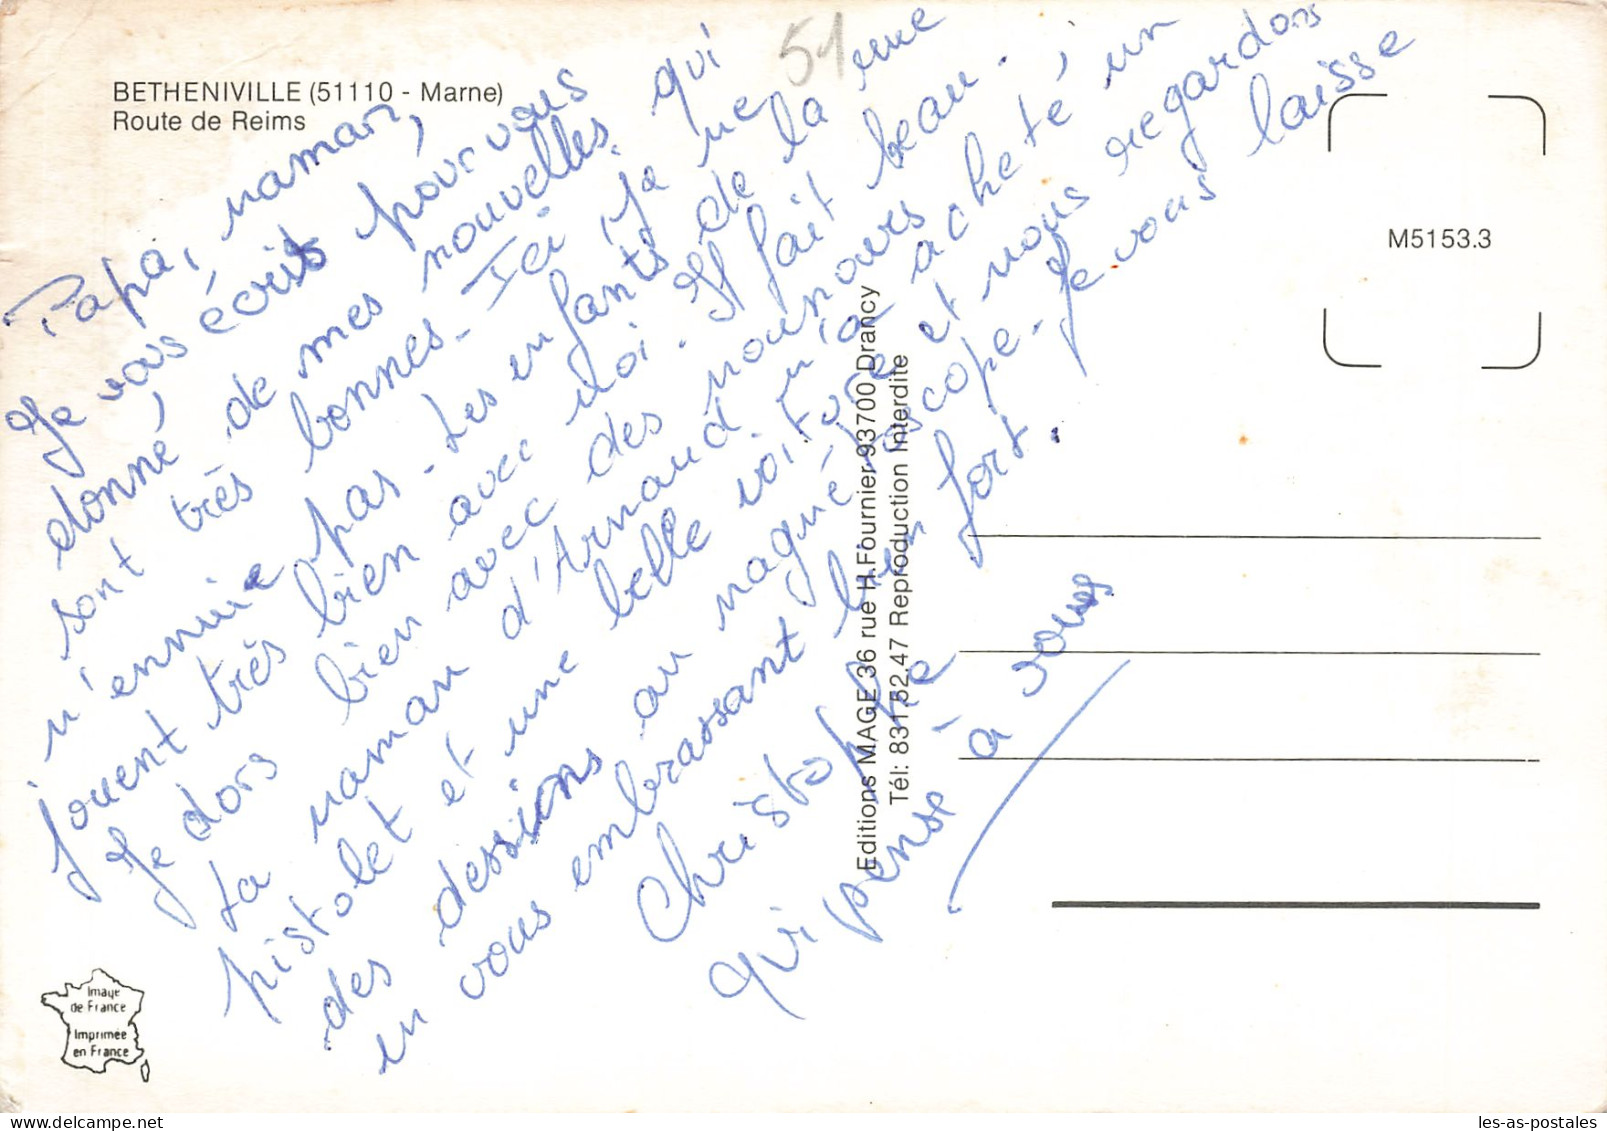 BETHENIVILLE (51110 - Marne)
Route de Reims
51
M5153.3
Papa, maman,
Je vous écrits pour vous
donné de mes nouvelles. qui
sont très bonnes. Ici, je ne
m'ennuie pas. Les enfants de la rue
jouent très bien avec moi. Il fait beau.
Je dors bien avec des nounours
La maman d'Arnaud m'a acheté un
pistolet et une belle voiture et nous regardons
des dessions au magnétoscope. Je vous laisse
en vous embrassant bien fort.
Christophe
qui pense à vous
Editions MAGE 36 rue H.Fournier 93700 Drancy
Tél: 831.52.47 Reproduction Interdite
Image
de France
Imprimée
en France
les-as-postales